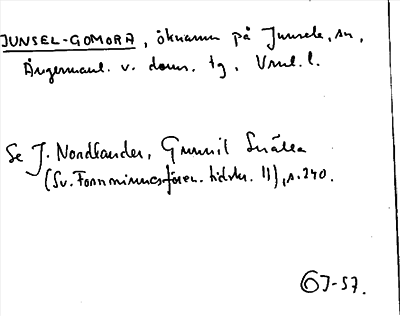 JUNSEL-GOMORA, öknamn på Junsele, sn,
Ångermanl. v. doms. tg, Vnl. l.
Se J. Nordlander, Gunnil Snälla
(Sv. Fornminnesfören. tidskr. 11), s. 240.